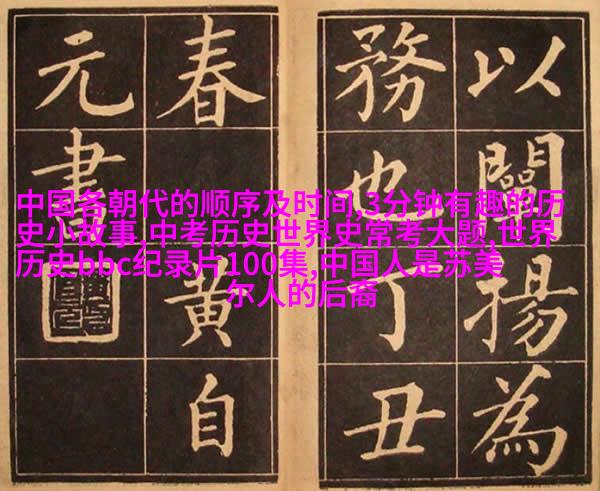 以闡揚為
務也丁丑
春黃自
元書
中国各朝代的顺序及时间,3分钟有趣的历
史小故事,中考历史世界史常考大题,世界
历史bbc纪录片100集,中国人是苏美
尔人的后裔